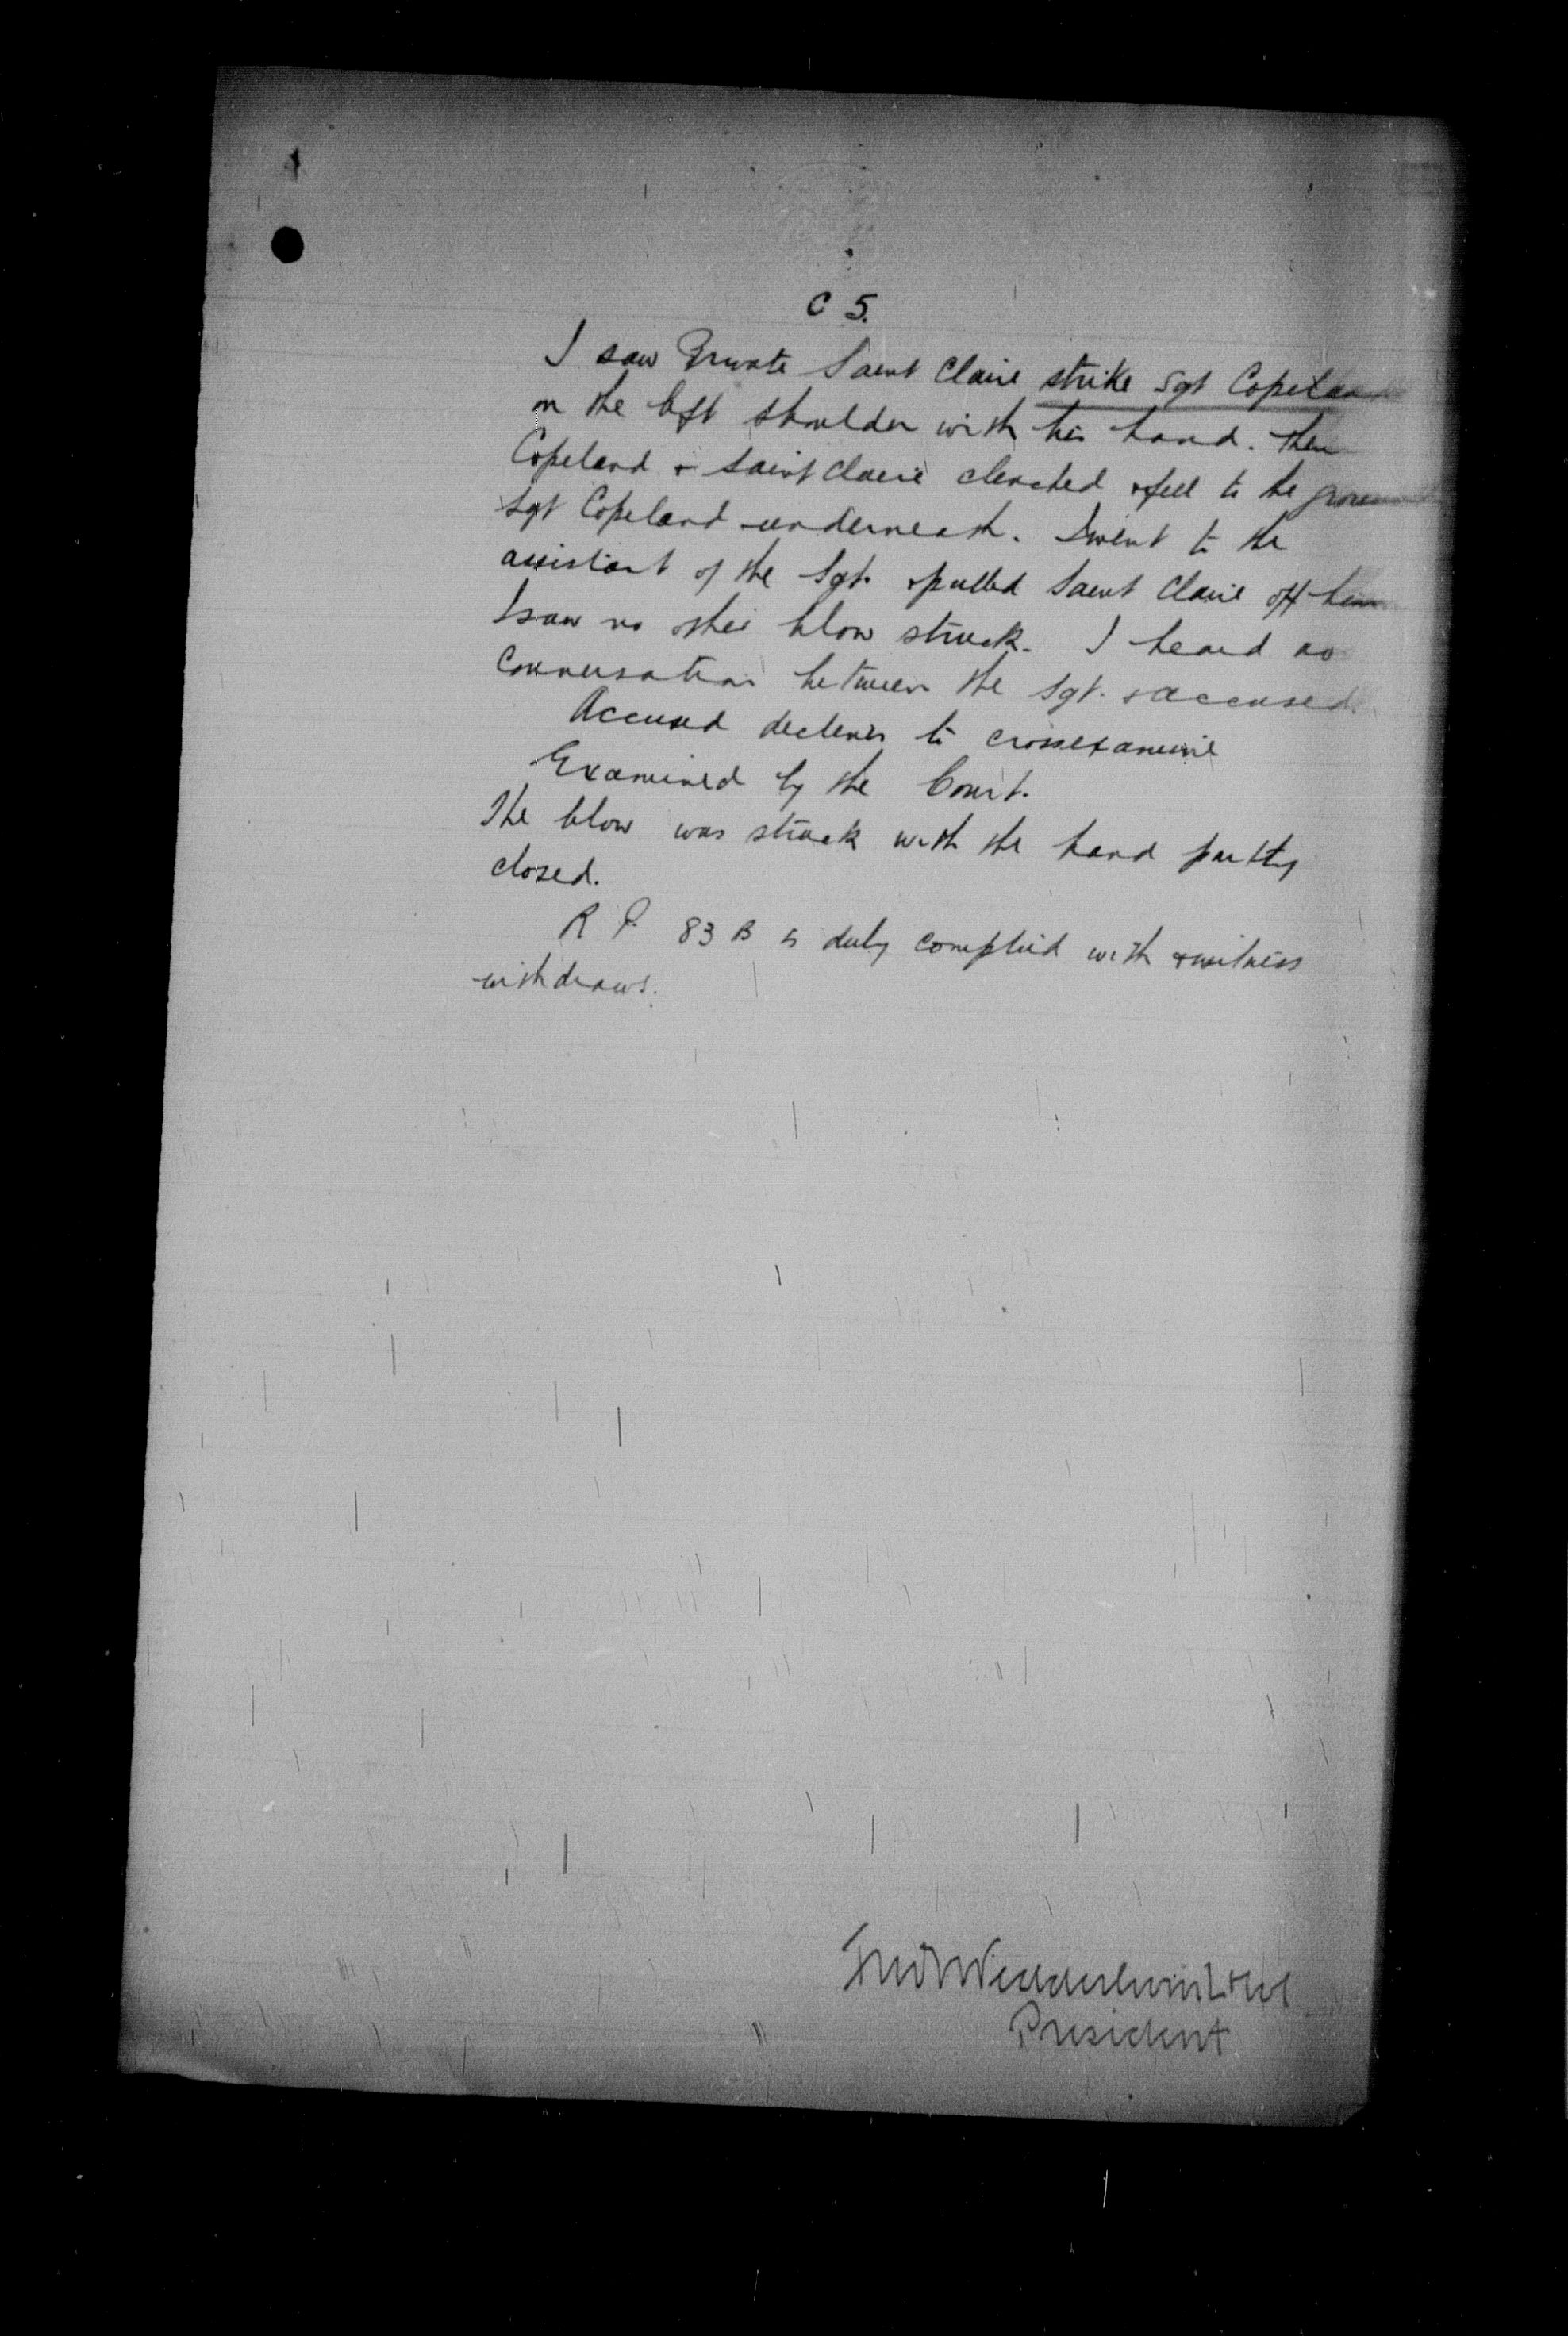 C 5.
I saw Private Saint Claire strike Sgt Copeland
on the left shoulder with his hand. Then
Copeland & Saint Claire clenched & fell to the ground
Sgt Copeland underneath. I went to the
assistant of the Sgt. & pulled Saint Claire off him
I saw no other blow struck. I heard no
conversation between the Sgt. & accused.
Accused declines to cross examine
Examined by the Court.
The blow was struck with the hand partly
closed.
R P 83 B is duly complied with & witness
withdraws.
President